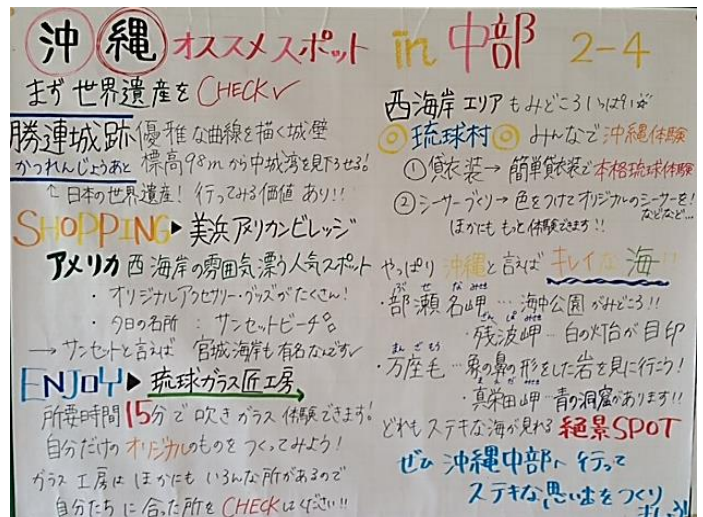 沖縄 オススメスポット in 中部 2-4
まず世界遺産を CHECK✓
勝連城跡 優雅な曲線を描く城壁
かつれんじょうあと 標高98mから中城湾を見下ろせる!
↑日本の世界遺産! 行ってみる価値 あり!!
SHOPPING▶美浜アメリカンビレッジ
アメリカ西海岸の雰囲気漂う人気スポット
・オリジナルアクセサリー・グッズがたくさん!
・夕日の名所 : サンセットビーチ
→サンセットと言えば 宮城海岸も有名なんです✓
ENJOY▶琉球ガラス匠工房
所要時間15分で吹きガラス体験できます!
自分だけのオリジナルのものをつくってみよう!
ガラス工房はほかにもいろんな所があるので
自分たちに合った所をCHECKしてください!!
西海岸エリアもみどころいっぱい☆
◎琉球村◎ みんなで沖縄体験
①貸衣装→簡単貸衣装で本格琉球体験
②シーサーづくり→色をつけてオリジナルのシーサーを!
などなど…
ほかにももっと体験できます!!
やっぱり沖縄と言えばキレイな海!!
ぶせなみさき
・部瀬名岬…海中公園がみどころ!!
ざんぱみさき
・残波岬…白の灯台が目印
まんざもう
・万座毛…象の鼻の形をした岩を見に行こう!
まえだみさき
・真栄田岬…青の洞窟があります!!
どれもステキな海が見れる絶景SPOT
ぜひ沖縄中部へ行って
ステキな思い出をつくり
ましょう